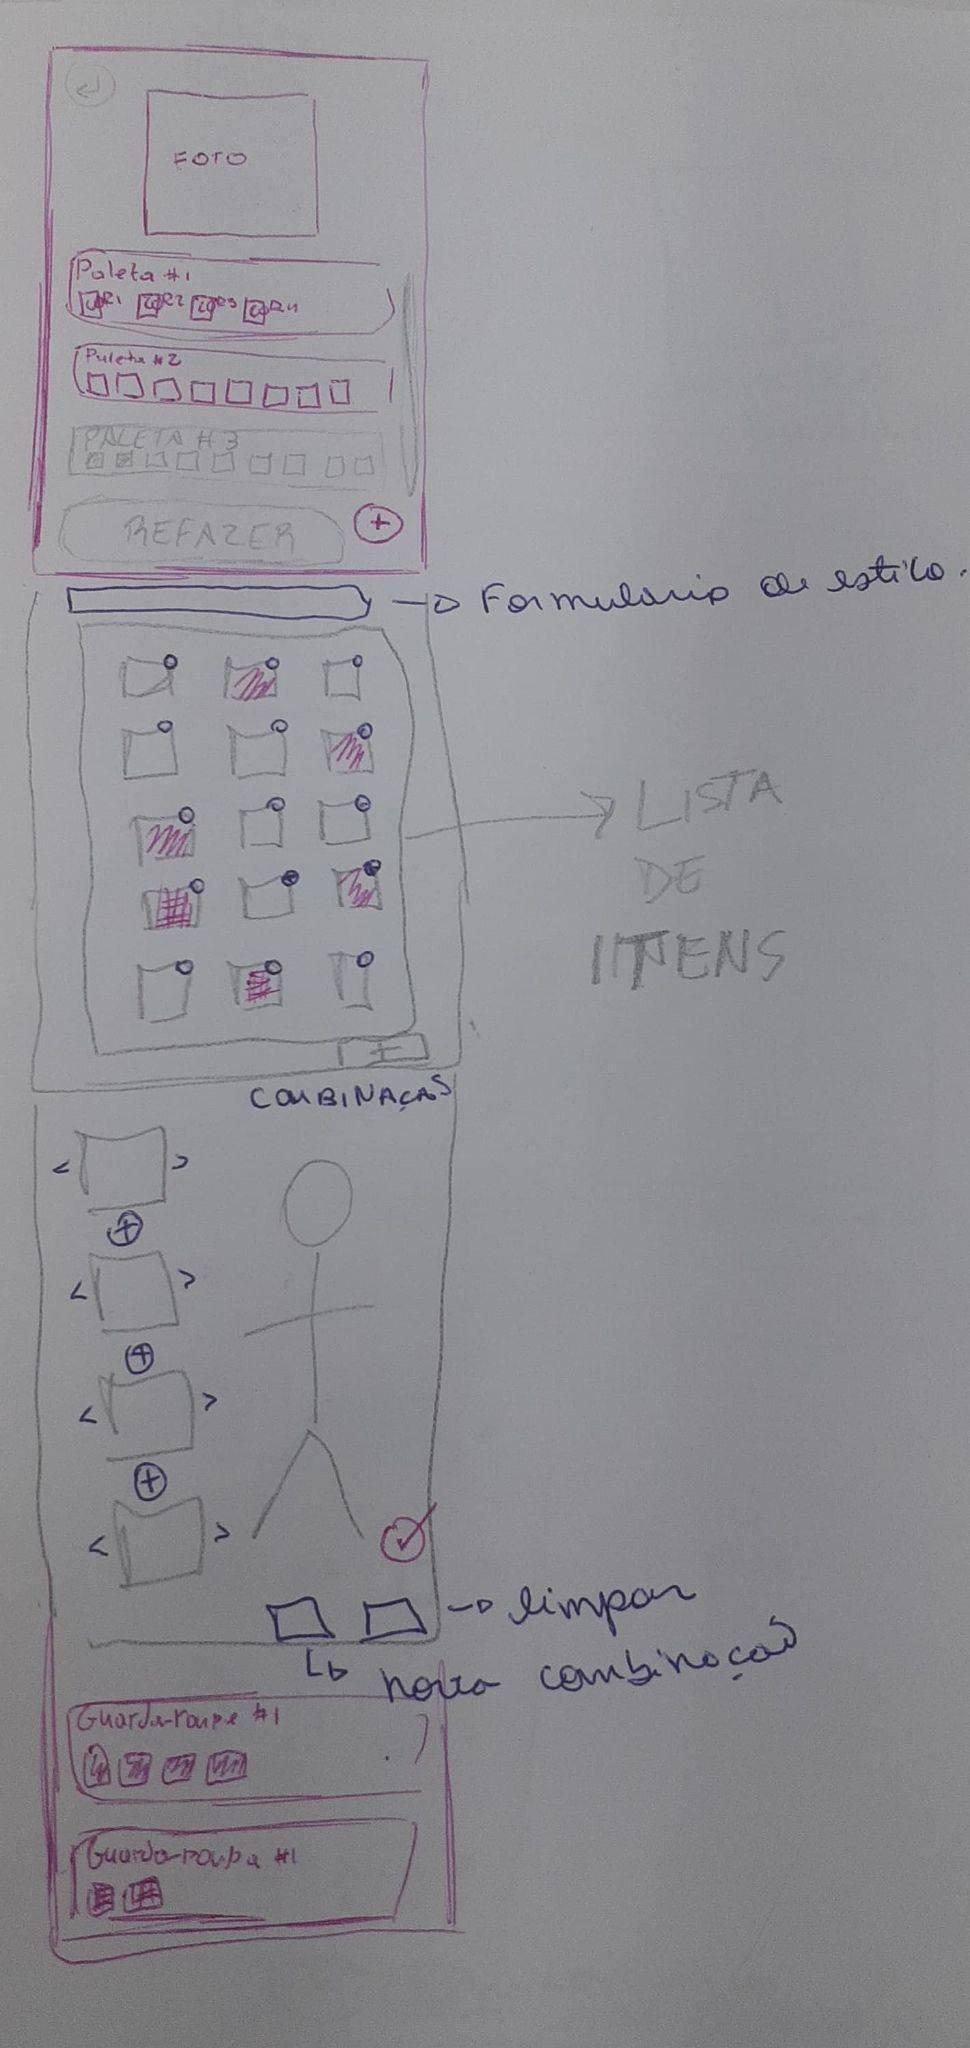 FOTO
Paleta #1
COR1 COR2 COR3 COR4
Paleta #2
PALETA #3
REFAZER
+
Formulario de estilo.
LISTA
DE
ITENS
+
COMBINAÇAS
< >
+
< >
+
< >
+
< >
limpar
nova combinação
Guarda-roupa #1
Guarda-roupa #1